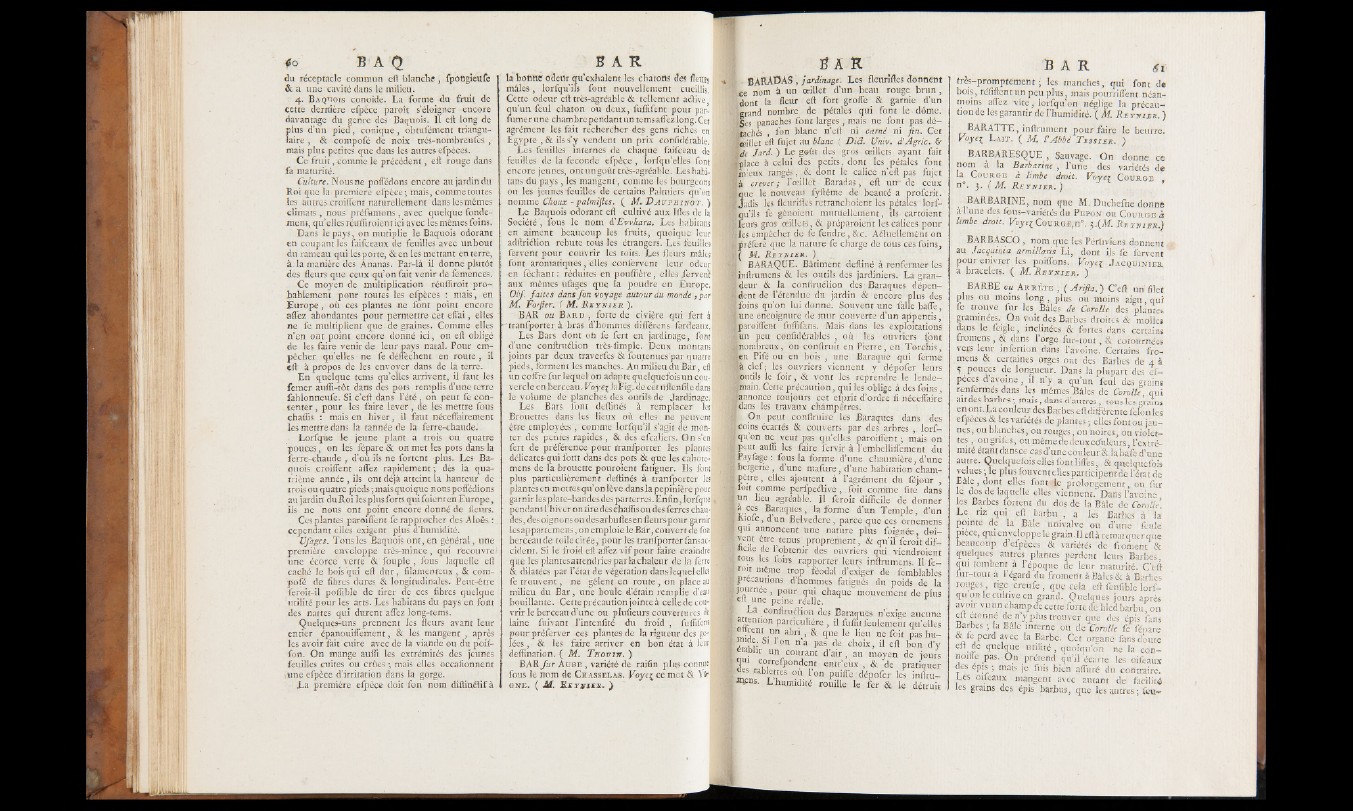 60 B A Q
du réceptacle commun eſt blanche, ſpongieuſe
& a une cavité dans le milieu.
4. BAQUOIS conoïde. La forme du fruit de
cette dernière eſpèce paroît s'éloigner encore
davantage du genre des Baquois. Il eſt long de
plus d'un pied, conique, obtuſément triangu-
laire, & compoſé de noix très-nombreuſes,
mais plus petites que dans les autres eſpèces.
Ce fruit, comme le précédent, eſt rouge dans
ſa maturité.
Culture. Nous ne poſſédons encore au jardin du
Roi que la première eſpèce; mais, comme toutes
les autres croiſſent naturellement dans les mêmes
climats, nous préſumons, avec quelque fonde-
ment, qu'elles réuſſiroient ici avec les mêmes ſoins.
Dans le pays, on mutiplie le Baquois odorant
en coupant les faiſceaux de feuilles avec un bout
du rameau qui les porte, & en les mettant en terre,
à la manière des Ananas. Par-là il donne plutôt
des fleurs que ceux qu'on fait venir de ſemences.
Ce moyen de multiplication réuſſiroit pro-
bablement pour toutes les eſpèces : mais, en
Europe, où ces plantes ne ſont point encore
aſſez abondantes pour permettre cet eſſai, elles
ne ſe multiplient que de graines. Comme elles
n'en ont point encore donné ici, on eſt obligé
de les faire venir de leur pays natal. Pour em-
pêcher qu'elles ne ſe deſſèchent en route, il
eſt à propos de les envoyer dans de la terre.
En quelque tems qu'elles arrivent, il faut les
ſemer auſſi-tôt dans des pots remplis d'une terre
ſablonneuſe. Si c'eſt dans l'été, on peut ſe con-
tenter, pour les faire lever, de les mettre ſous
chaſſis : mais en hiver, il faut néceſſairement
les mettre dans la tannée de la ſerre-chaude.
Lorſque le jeune plant a trois ou quatre
pouces, on les ſépare & on met les pots dans la
ſerre-chaude, d'où ils ne ſortent plus. Les Ba-
quois croiſſent aſſez rapidement; dès la qua-
trième année, ils ont déjà atteint la hauteur de
trois ou quatre pieds; mais quoique nous poſſédions
au jardin du Roi les plus forts qui ſoient en Europe,
ils ne nous ont point encore donné de fleurs.
Ces plantes paroiſſent ſe rapprocher des Aloès :
cependant elles exigent plus d'humidité.
Uſages. Tous les Baquois ont, en général, une
première enveloppe très-mince, qui recouvre
une écorce verte & ſouple, ſous laquelle eſt
caché le bois qui eſt dur, filamenteux, & com-
poſé de fibres dures & longitudinales. Peut-être
ſeroit-il poſſible de tirer de ces fibres quelque
utilité pour les arts. Les habitans du pays en font
des nattes qui durent aſſez long-tems.
Quelques-uns prennent les fleurs avant leur
entier épanouiſſement, & les mangent, après
les avoir fait cuire avec de la viande ou du poiſ-
ſon. On mange auſſi les extrémités des jeunes
feuilles cuites ou crûes; mais elles occaſionnent
une eſpèce d'irritation dans la gorge.
La première eſpèce doit ſon nom diſtinctif à
B A R
la bonne odeur qu'exhalent les chatons des fleurs
mâles, lorſqu'ils ſont nouvellement cueillis.
Cette odeur eſt très-agréable & tellement active,
qu'un ſeul chaton ou deux, ſuffiſent pour par-
fumer une chambre pendant un tems aſſez long. Cet
agrément les fait rechercher des gens riches en
Egypte, & ils s'y vendent un prix conſidérable.
Les feuilles internes de chaque faiſceau de
feuilles de la ſeconde eſpèce, lorſqu'elles ſont
encore jeunes, ont un goût très-agréable. Les habi-
tans du pays, les mangent, comme les bourgeons
ou les jeunes feuilles de certains Palmiers qu'on
nomme Choux-palmiſtes. ( M. DAUPHINOT. )
Le Baquois odorant eſt cultivé aux Iſles de la
Société, ſous le nom d'Evvhara. Les habitans
en aiment beaucoup les fruits, quoique leur
adſtriction rebute tous les étrangers. Les feuilles
ſervent pour couvrir les toits. Les fleurs mâles
ſont aromatiques, elles conſervent leur odeur
en ſéchant : réduites en pouſſière, elles ſervent
aux mêmes uſages que la poudre en Europe.
Obſ. faites dans ſon voyage autour du monde, par
M. Forſter. ( M. REYNIER ).
BAR ou BARD, ſorte de civière qui ſert à
tranſporter à bras d'hommes différens fardeaux.
Les Bars dont on ſe ſert en jardinage, ſont
d'une conſtruction très-ſimple. Deux montans
joints par deux traverſes & ſoutenues par quatre
pieds, forment les manches. Au milieu du Bar, eſt
un coffre ſur lequel on adapte quelquefois un cou-
vercle en berceau. Voyez la Fig. de cet uſtenſile dans
le volume de planches des outils de Jardinage.
Les Bars ſont deſtinés à remplacer les
Brouettes dans les lieux où elles ne peuvent
être employées, comme lorſqu'il s'agit de mon-
ter des pentes rapides, & des eſcaliers. On s'en
ſert de préférence pour tranſporter les plantes
délicates qui ſont dans des pots & que les cahote-
mens de la brouette pouroient fatiguer. Ils ſont
plus particulièrement deſtinés à tranſporter les
plantes en mottes qu'on lève dans la pepinière pour
garnir les plate-bandes des parterres. Enfin, lorſque
pendant l'hiver on tire des chaſſis ou des ſerres chau-
des, des oignons ou des arbuſtes en fleurs pour garnir
les appartemens, on emploie le Bar, couvert de ſon
berceau de toile cirée, pour les tranſporter ſans ac-
cident. Si le froid eſt aſſez vif pour faire craindre
que les plantes attendries par la chaleur de la ſerre
& dilatées par l'état de végétation dans lequel elles
ſe trouvent, ne gèlent en route, on place au
milieu du Bar, une boule d'étain remplie d'eau
bouillante. Cette précaution jointe à celle de cou-
vrir le berceau d'une ou pluſieurs couvertures de
laine ſuivant l'intenſité du froid, ſuffiſent
pour préſerver ces plantes de la rigueur des ge-
lées, & les faire arriver en bon état à leur
deſtination. ( M. THOUIN. )
BAR ſur AUBE, variété de raiſin plus connue
ſous le nom de CHASSELAS. Voyez ce mot & VI-
GNE. ( M. REYNIER. )
B A R
BARADAS, jardinage. Les fleuriſtes donnent
ce nom à un œillet d'un beau rouge brun,
dont la fleur eſt fort groſſe & garnie d'un
grand nombre de pétales qui ſont le dôme.
Ses panaches ſont larges, mais ne ſont pas dé-
tachés, ſon blanc n'eſt ni carné ni fin. Cet
œillet eſt ſujet au blanc : Dict. Univ. d'Agric. &
de Jard. ) Le goût des gros œillets ayant fait
place à celui des petits, dont les pétales ſont
mieux rangés, & dont le calice n'eſt pas ſujet
à crever; l'œillet Baradas, eſt un de ceux
que le nouveau ſyſtême de beauté a proſcrit.
Jadis les fleuriſtes retranchoient les pétales lorſ-
qu'ils ſe gênoient mutuellement, ils cartoient
leurs gros œillets, & préparoient les calices pour
les empêcher de ſe fendre, &c. Actuellement on
préfère que la nature ſe charge de tous ces ſoins,
( M. REYNIER. )
BARAQUE. Bâtiment deſtiné à renfermer les
inſtrumens & les outils des jardiniers. La gran-
deur & la conſtruction des Baraques dépen-
dent de l'étendue du jardin & encore plus des
ſoins qu'on lui donne. Souvent une ſalle baſſe,
une encoignure de mur couverte d'un appentis,
paroiſſent ſuffiſans. Mais dans les exploitations
un peu conſidérables, où les ouvriers ſont
nombreux, on conſtruit en Pierre, en Torchis,
en Piſé ou en bois, une Baraque qui ferme
à clef; les ouvriers viennent y dépoſer leurs
outils le ſoir, & vont les reprendre le lende-
main. Cette précaution, qui les oblige à des ſoins,
annonce toujours cet eſprit d'ordre ſi néceſſaire
dans les travaux champêtres.
On peut conſtruire les Baraques dans des
coins écartés & couverts par des arbres, lorſ-
qu'on ne veut pas qu'elles paroiſſent; mais on
peut auſſi les faire ſervir à l'embelliſſement du
Payſage : ſous la forme d'une chaumière, d'une
bergerie, d'une maſure, d'une habitation cham-
pêtre, elles ajoutent à l'agrément du ſéjour,
ſoit comme perſpective, ſoit comme ſite dans
un lieu agréable. Il ſeroit difficile de donner
à ces Baraques, la forme d'un Temple, d'un
Kioſe, d'un Belvedere, parce que ces ornemens
qui annoncent une nature plus ſoignée, doi-
vent être tenus proprement, & qu'il ſeroit dif-
ficile de l'obtenir des ouvriers qui viendroient
tous les ſoirs rapporter leurs inſtrumens. Il ſe-
roit même trop féodal d'exiger de ſemblables
précautions d'hommes fatigués du poids de la
journée, pour qui chaque mouvement de plus
eſt une peine réelle.
La conſtruction des Baraques n'exige aucune
attention particulière, il ſuffit ſeulement qu'elles
offrent un abri, & que le lieu ne ſoit pas hu-
mide. Si l'on n'a pas de choix, il eſt bon d'y
établir un courant d'air, au moyen de jours
qui correſpondent entr'eux, & de pratiquer
des tablettes où l'on puiſſe dépoſer les inſtru-
mens. L'humidité rouille le fer & le détruit
B A R 61
très-promptement; les manches, qui ſont de
bois, réſiſtent un peu plus, mais pourriſſent néan-
moins aſſez vite, lorſqu'on néglige la précau-
tion de les garantir de l'humidité. ( M. REYNIER. )
BARATTE, inſtrument pour faire le beurre.
Voyez LAIT. ( M. l'Abbé TESSIER. )
BARBARESQUE, Sauvage. On donne ce
nom à la Barbarine, l'une des variétés de
la COURGE à limbe droit. Voyez COURGE,
n°. 3. ( M. REYNIER. )
BARBARINE, nom que M. Ducheſne donne
à l'une des ſous-variétés du PEPON ou COURGE à
limbe droit. Voyez COURGE, n°. 3. ( M. REYNIER.)
BARBASCO, nom que les Péruviens donnent
au Jacquinia armillaris Li, dont ils ſe ſervent
pour enivrer les poiſſons. Voyez JACQUINIER
à bracelets. ( M. REYNIER. )
BARBE ou ARRÊTE, ( Ariſta. ) C'eſt un filet
plus ou moins long, plus ou moins aigu, qui
ſe trouve ſur les Bâles de Corolle des plantes
graminées. On voit des Barbes droites & molles
dans le ſeigle, inclinées & fortes dans certains
fromens, & dans l'orge ſur-tout, & contournées
vers leur inſertion dans l'avoine. Certains fro-
mens & certaines orges ont des Barbes de 4 à
5 pouces de longueur. Dans la plupart des eſ-
pèces d'avoine, il n'y a qu'un ſeul des grains
renfermés dans les mêmes Bâles de Corolle, qui
ait des barbes; mais, dans d'autres, tous les grains
en ont. La couleur des Barbes eſt différente ſelon les
eſpèces & les variétés de plantes; elles ſont ou jau-
nes, ou blanches, ou rouges, ou noires, ou violet-
tes, ou griſes, ou même de deux couleurs, l'extré-
mité étant dans ce cas d'une couleur & la baſe d'une
autre. Quelquefois elles ſont liſſes, & quelquefois
velues; le plus ſouvent elles participent de l'état de
Bâle, dont elles ſont le prolongement, ou ſur
le dos de laquelle elles viennent. Dans l'avoine,
les Barbes ſortent du dos de la Bâle de Corolle.
Le riz qui eſt barbu, a les Barbes à la
pointe de la Bâle univalve ou d'une ſeule
pièce, qui enveloppe le grain. Il eſt à remarquer que
beaucoup d'eſpèces & variétés de froment &
quelques autres plantes perdent leurs Barbes,
qui tombent à l'époque de leur maturité. C'eſt
ſur-tout à l'égard du froment à Bâles & à Barbes
rouges, tige creuſe, que cela eſt ſenſible lorſ-
qu'on le cultive en grand. Quelques jours après
avoir vu un champ de cette ſorte de bled barbu, on
eſt étonné de n'y plus trouver que des épis ſans
Barbes; la Bâle interne ou de Corolle ſe ſépare
& ſe perd avec la Barbe. Cet organe ſans doute
eſt de quelque utilité, quoiqu'on ne la con-
noiſſe pas. On prétend qu'il écarte les oiſeaux
des épis; mais je ſuis bien aſſuré du contraire.
Les oiſeaux mangent avec autant de facilité
les grains des épis barbus, que les autres; ſeu-